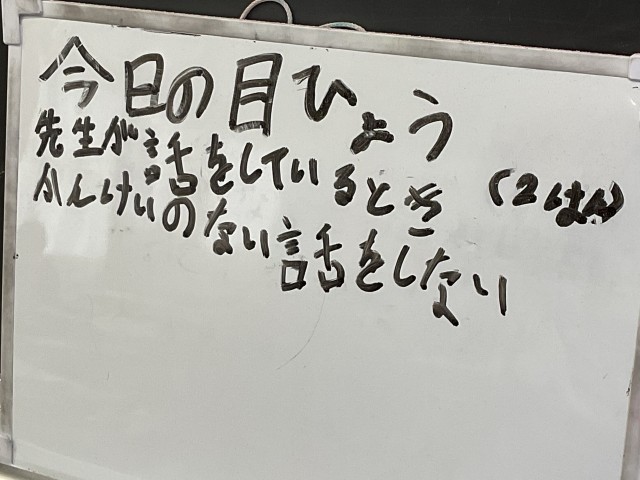 今日の目ひょう
先生が話をしているとき
かんけいのない話をしない
(2はん)